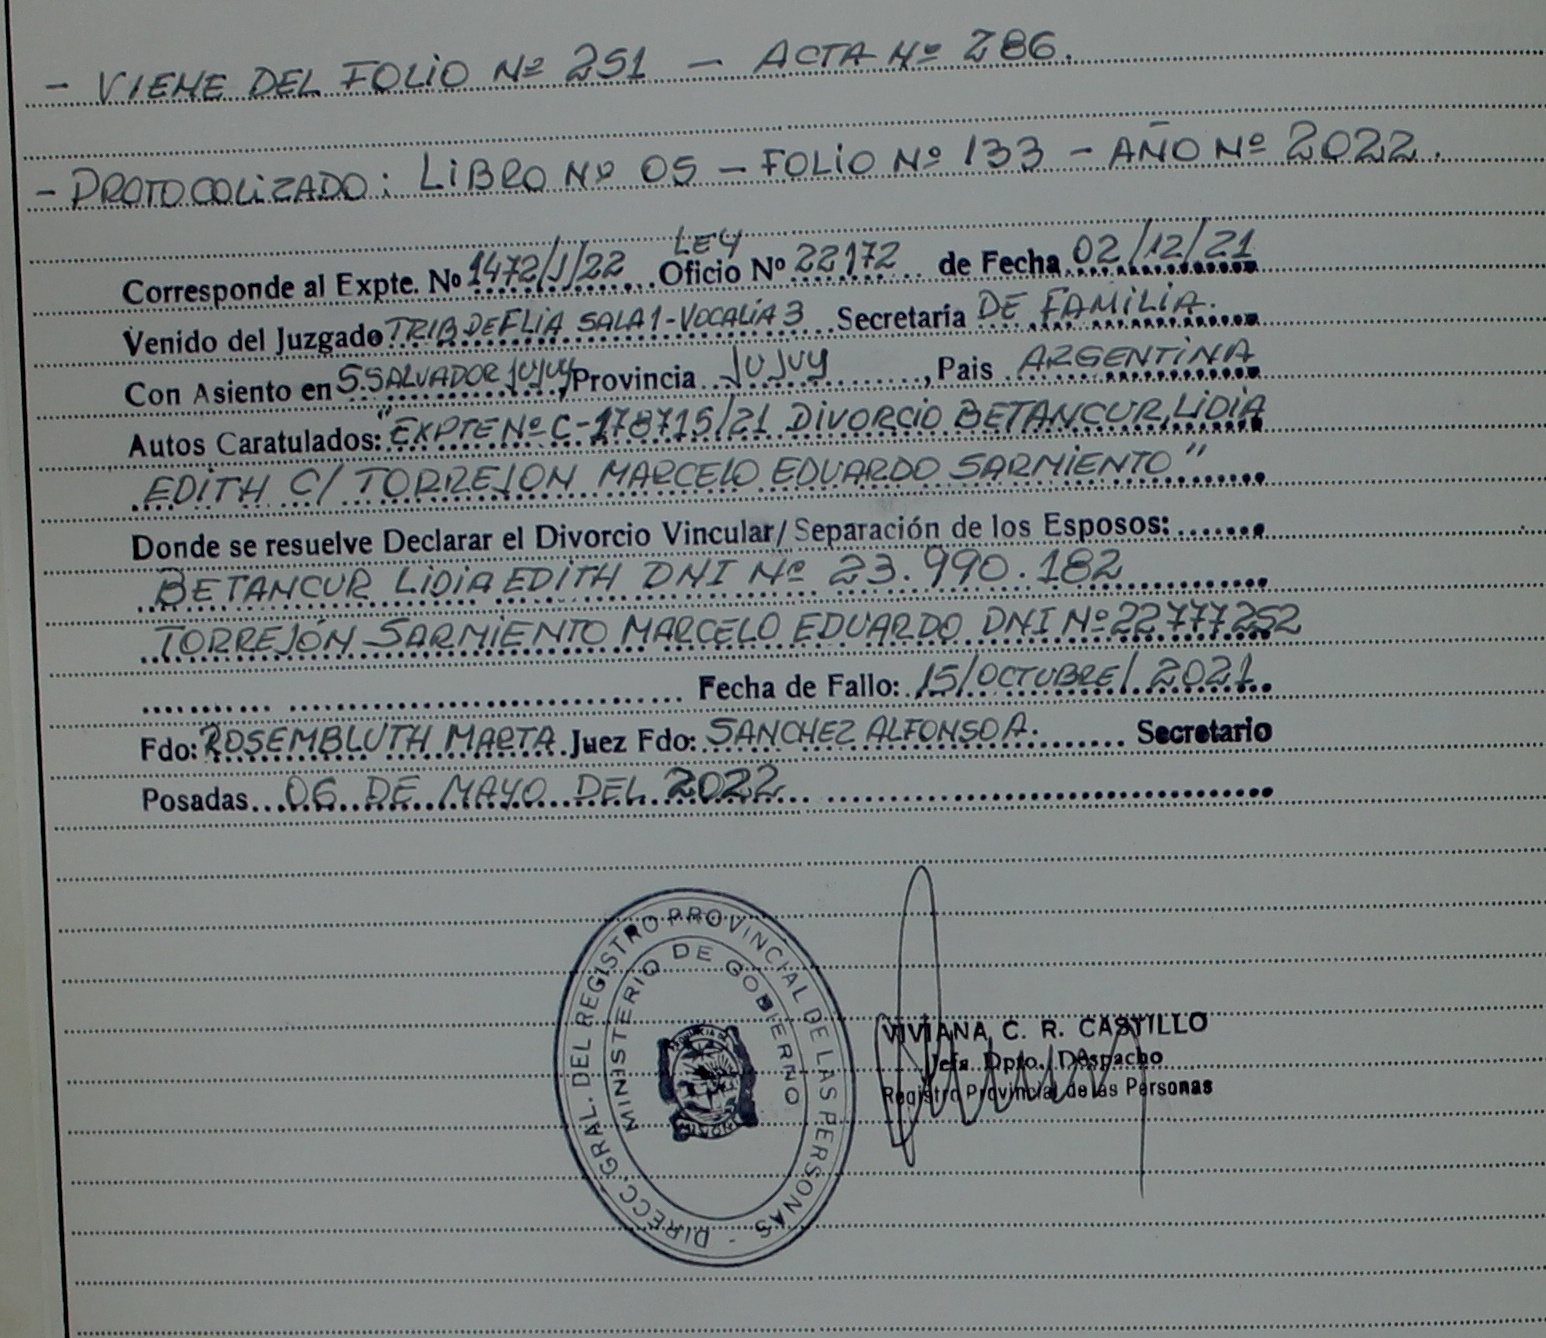 - VIENE DEL FOLIO Nº 251 - ACTA Nº 286.
- PROTOCOLIZADO: LIBRO Nº 05 - FOLIO Nº 133 - AÑO Nº 2022.
LEY
Corresponde al Expte. Nº 1472/J/22 Oficio Nº 22172 de Fecha 02/12/21
Venido del Juzgado TRIB DE FLIA SALA 1-VOCALIA 3 Secretaria DE FAMILIA.
Con Asiento en S.SALVADOR JUJUY Provincia JUJUY, Pais ARGENTINA
Autos Caratulados: "EXPTE Nº C-178715/21 DIVORCIO BETANCUR, LIDIA
EDITH C/ TORREJON MARCELO EDUARDO SARMIENTO"
Donde se resuelve Declarar el Divorcio Vincular/Separación de los Esposos:
BETANCUR LIDIA EDITH DNI Nº 23.990.182
TORREJÓN SARMIENTO MARCELO EDUARDO DNI Nº 22777252
Fecha de Fallo: 15/OCTUBRE/2021
Fdo: ROSEMBLUTH MARTA Juez Fdo: SANCHEZ ALFONSO A. Secretario
Posadas 06 DE MAYO DEL 2022
DIRECC. GRAL. DEL REGISTRO PROVINCIAL DE LAS PERSONAS -
MINISTERIO DE GOBIERNO
VIVIANA C. R. CASTILLO
Jefa Dpto. Despacho
Registro Provincial de las Personas